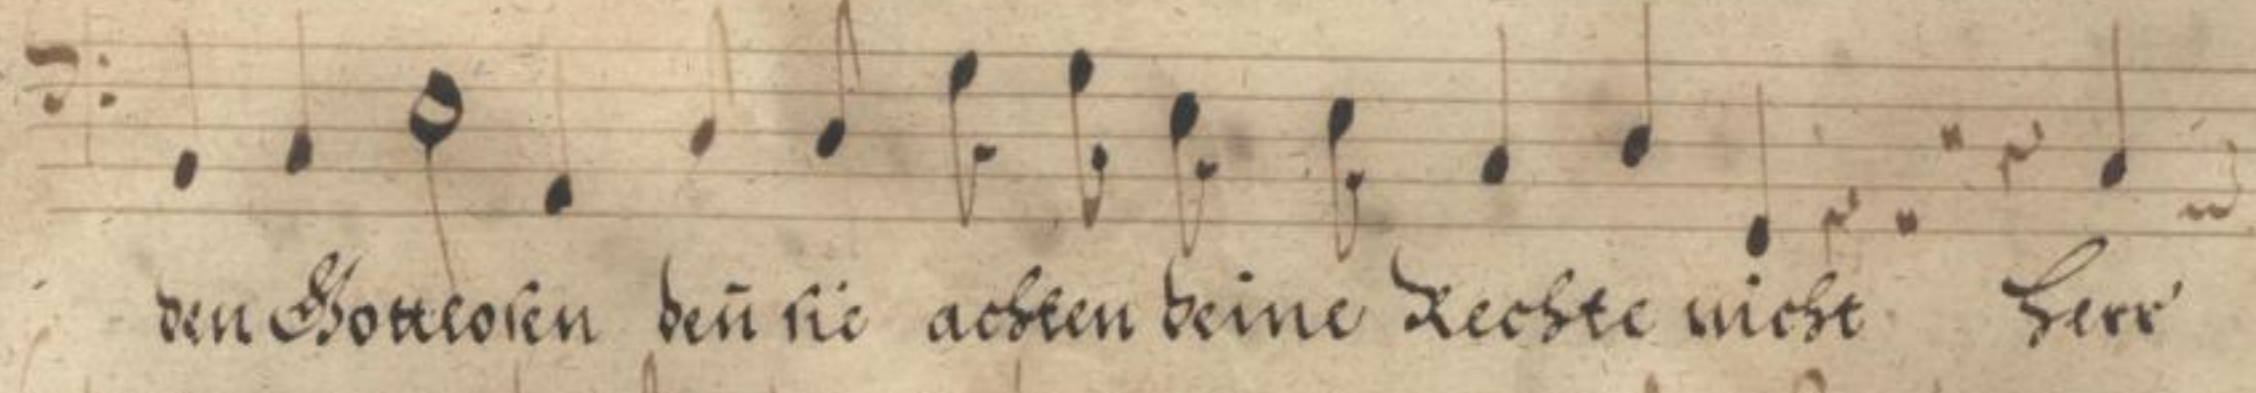 den Gottlosen deñ sie achten deine Rechte nicht Herr